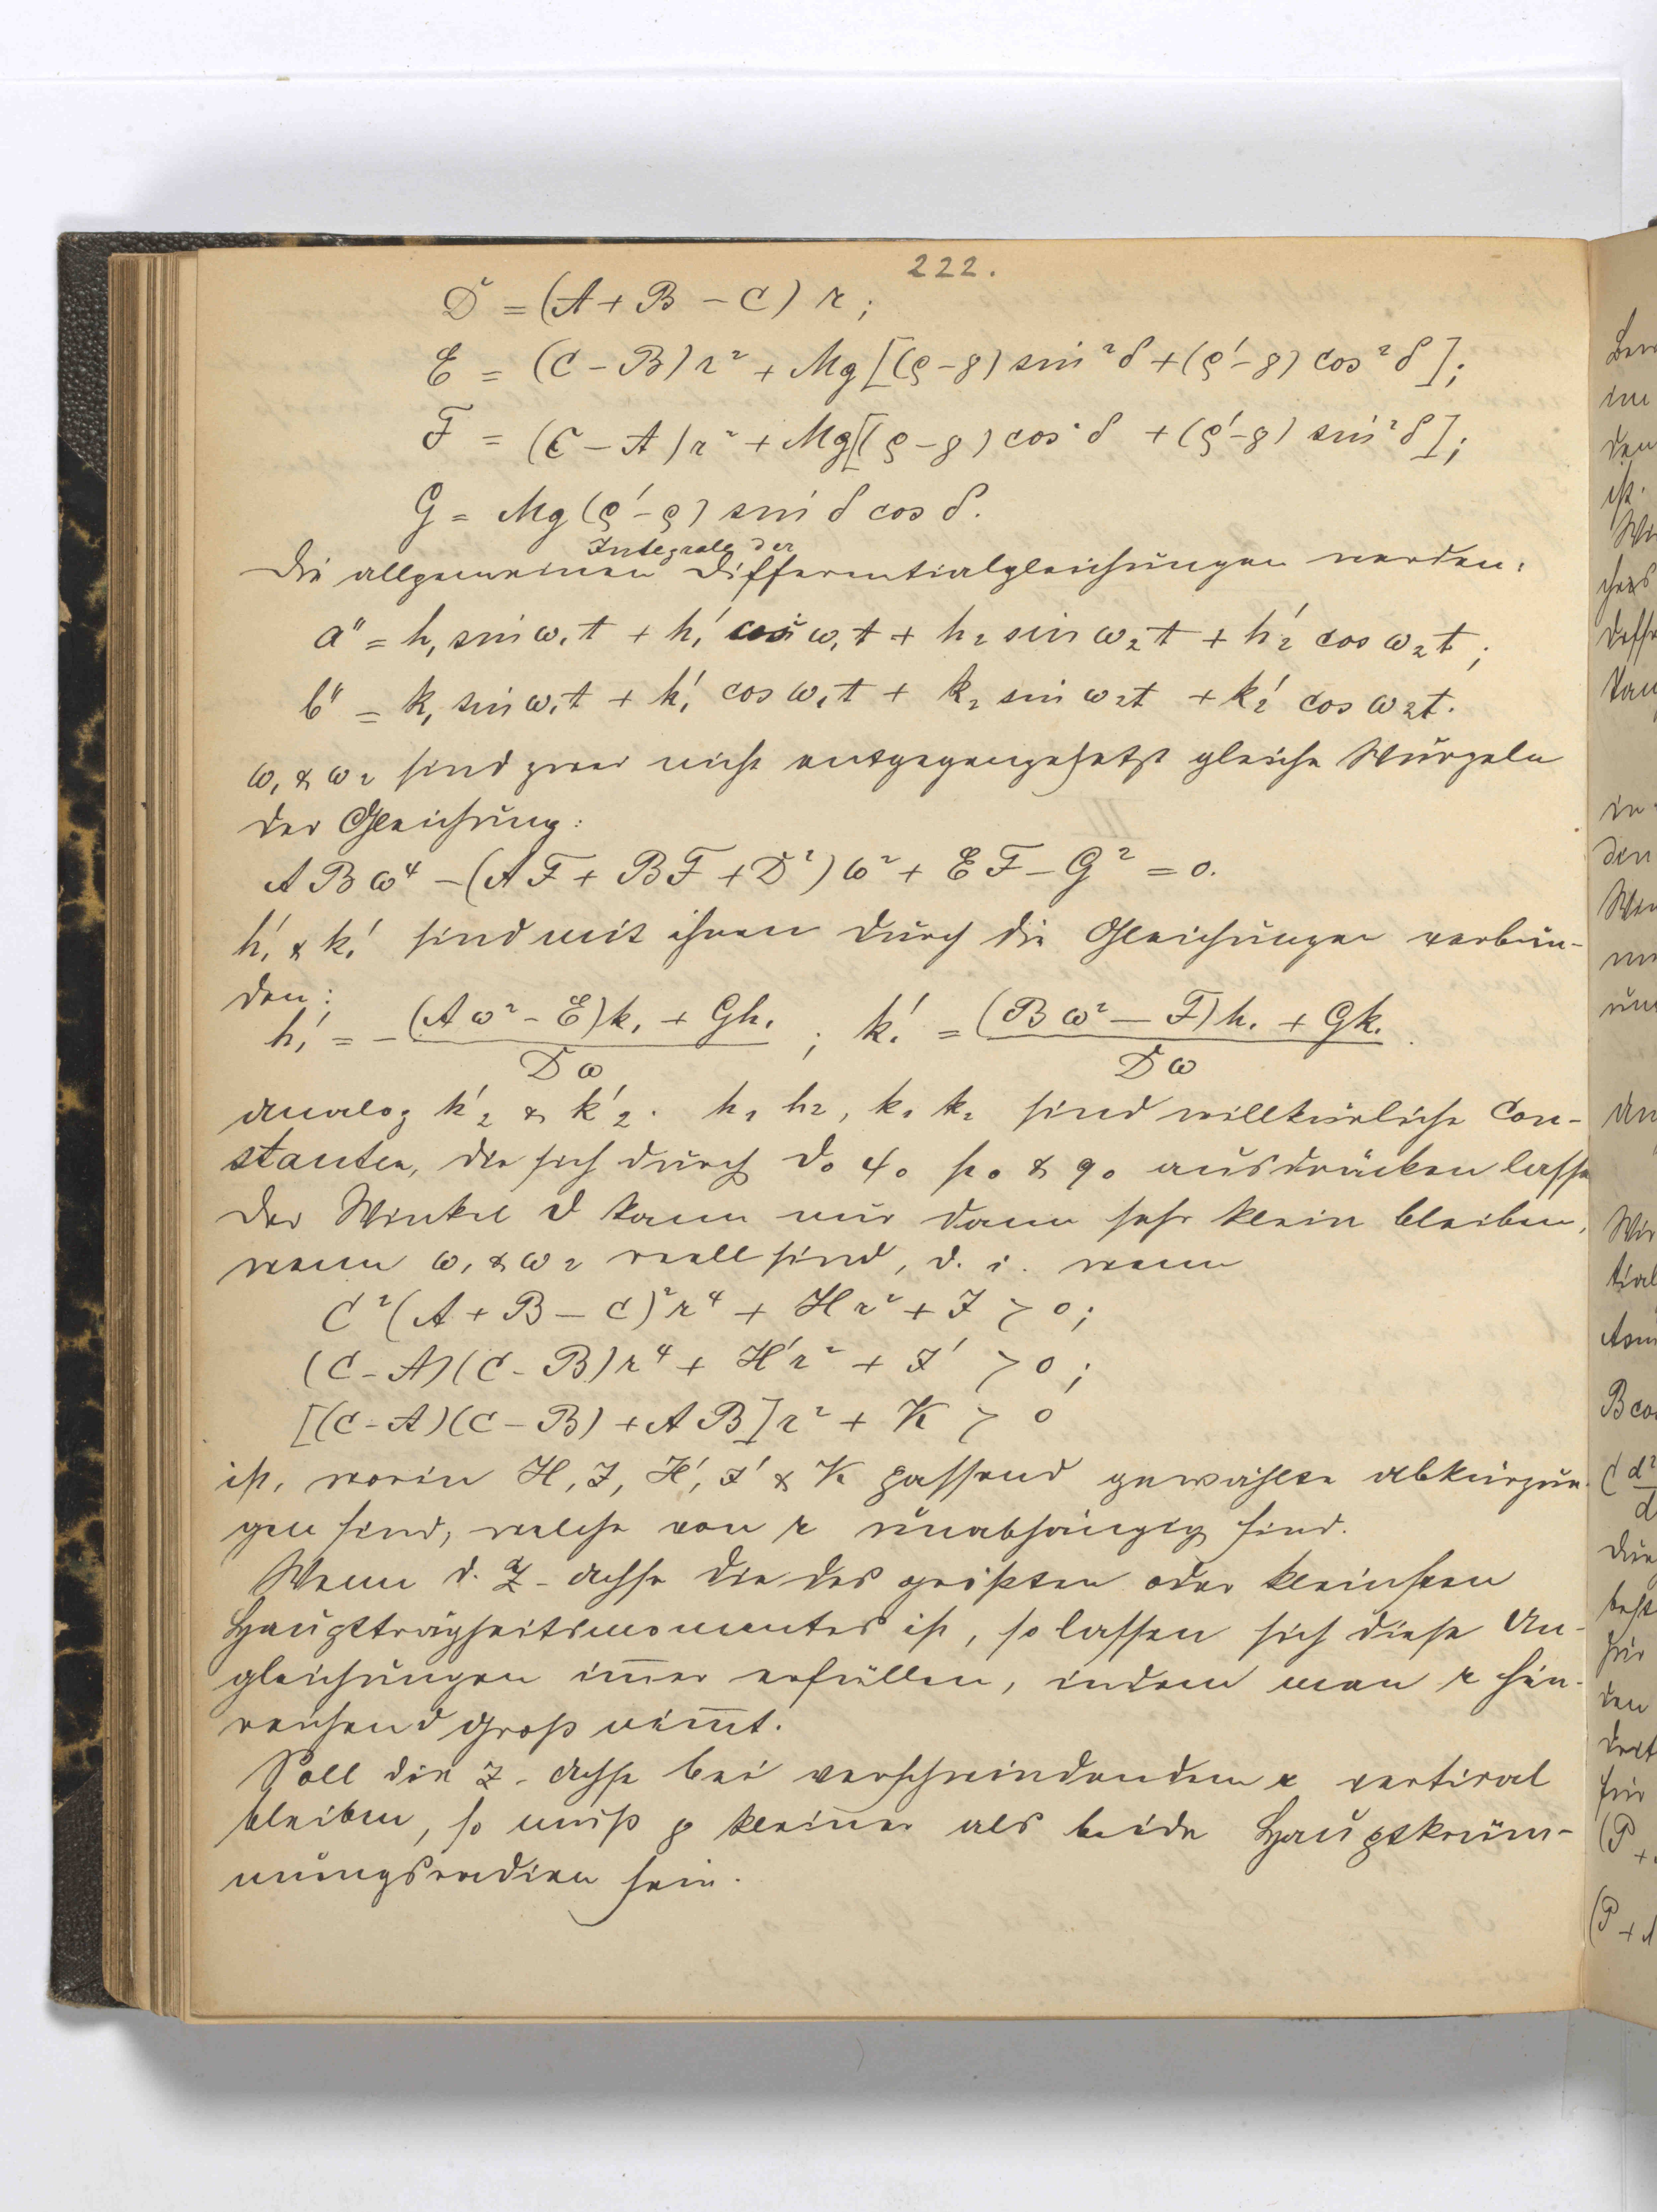 222.
D = (A + B - C) r;
E = (C - B) r² + Mg [(ρ - g) sin²δ + (ρ' - g) cos²δ];
F = (C - A) r² + Mg [(ρ - g) cos²δ + (ρ' - g) sin²δ];
G = Mg (ρ' - ρ) sin δ cos δ.
Integrale der
Die allgemeinen Differentialgleichungen werden:
a" = h₁ sin ω₁t + h₁' cos ω₁t + h₂ sin ω₂t + h₂' cos ω₂t;
b" = k₁ sin ω₁t + k₁' cos ω₁t + k₂ sin ω₂t + k₂' cos ω₂t.
ω₁ & ω₂ sind zwei nicht entgegengesetzt gleiche Wurzeln
der Gleichung:
ABω⁴ - (AF + BF + D²) ω² + EF - G² = 0.
h₁' & k₁' sind mit ihnen durch die Gleichungen verbun-
den:
h₁' = - (Aω² - E)k₁ + Gh₁ / Dω ; k₁' = (Bω² - F)h₁ + Gk₁ / Dω.
analog h₂' & k₂'. h₁ h₂, k₁ k₂ sind willkürliche Con-
stanten, die sich durch ϑ₀ φ₀ p₀ & q₀ ausdrücken lasse
Der Winkel ϑ kann nur dann sehr klein bleiben,
wenn ω₁ & ω₂ reell sind, d. i. wenn
C²(A + B - C)²r⁴ + Hr² + J > 0;
(C - A)(C - B)r⁴ + H'r² + J' > 0;
[(C - A)(C - B) + AB]r² + K > 0
ist, worin H, J, H', J' & K passend gewählte abkürzun-
gen sind, welche von r unabhängig sind.
Wenn d. Z-achse die des größten oder kleinsten
Hauptträgheitsmomentes ist, so lassen sich diese Un-
gleichungen im̅er erfüllen, indem man r hin-
reichend groß nim̅t.
Soll die Z-achse bei verschwindendem r vertical
bleiben, so muß g kleiner als beide Hauptkrüm-
mungsradien sein.